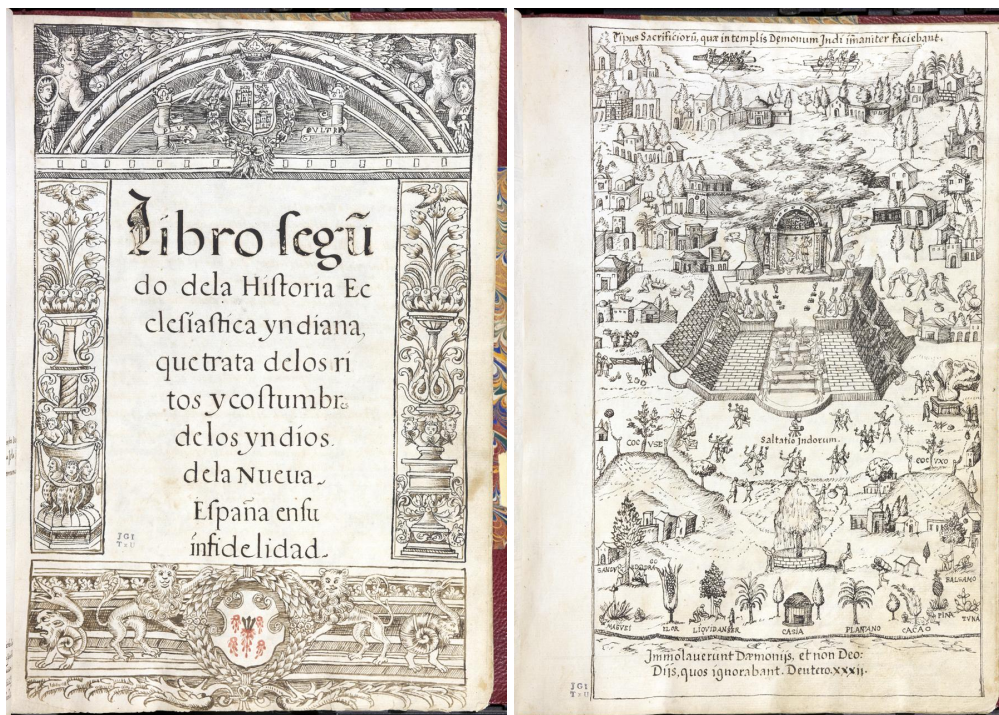 PLVS
VLTRA
Libro segũ
do dela Historia Ec
clesiastica yndiana,
que trata delos ri
tos y costumbr
delos yndios.
dela Nueua
España ensu
infidelidad
JGI
Tipus Sacrificiorũ, quæ in templis Demonum Indi ĩmaniter faciebant.
Saltatio Indorum.
COC
COC
LIQUIDAMBER
BALSAMO
MAGVEI
FLOR
CASIA
PLANTANO
CACAO
PIÑA
TUNA
Immolauerunt Dæmonijs, et non Deo:
Dijs, quos ignorabant. Deutero.xxxii.
JGI